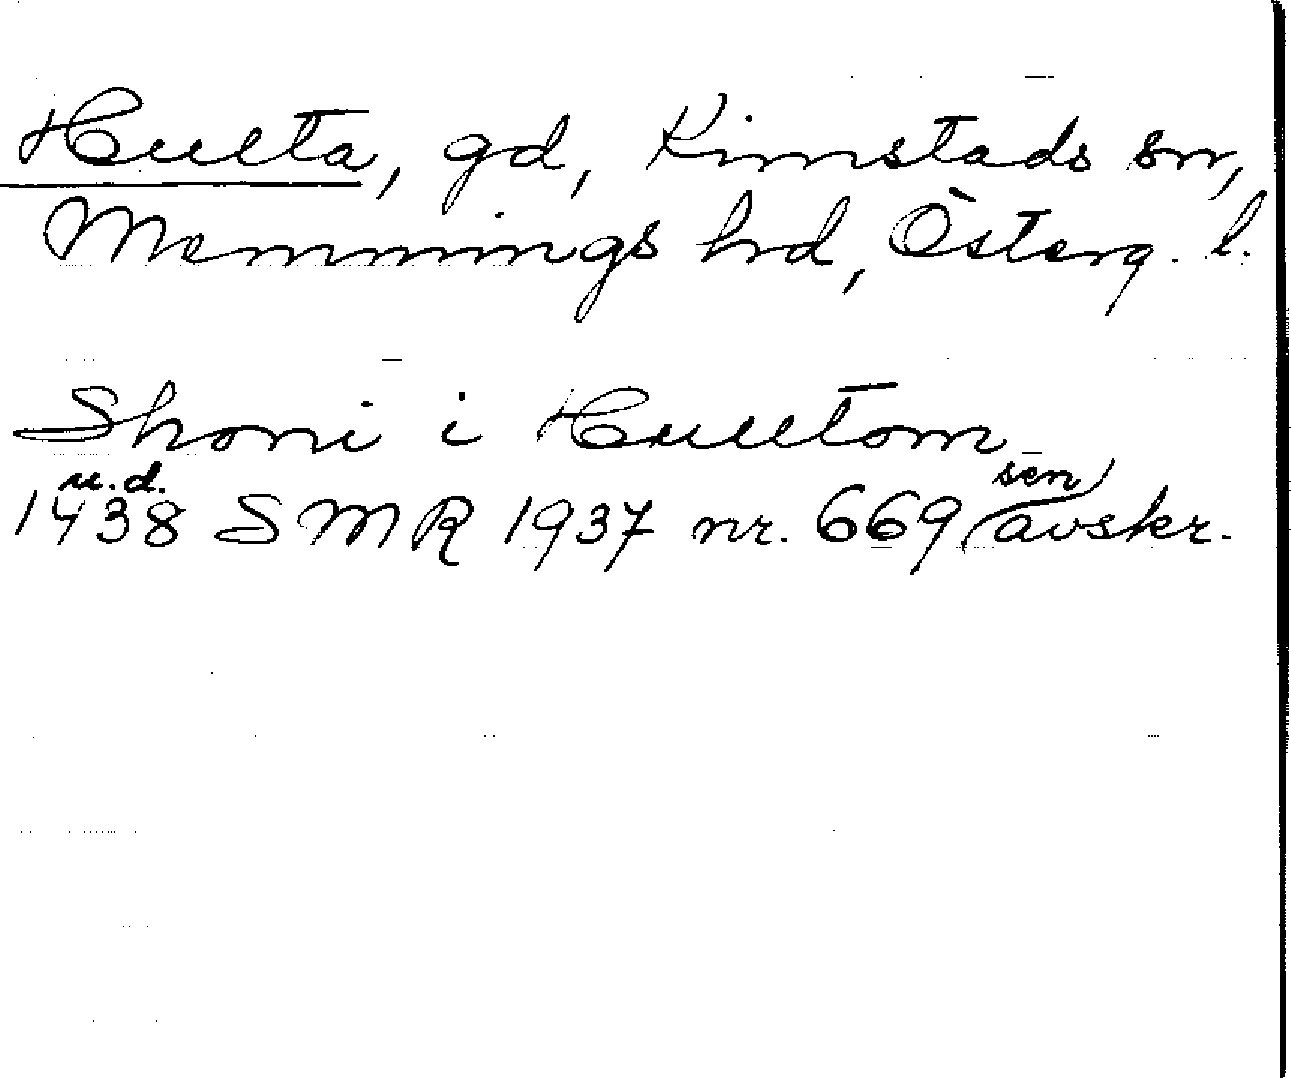 Hulta, gd, Kimstads sn,
Memmings hd, Österg. l.
Skoni i Hulltom
u.d.
1438 SMR 1937 nr. 669 sen avskr.